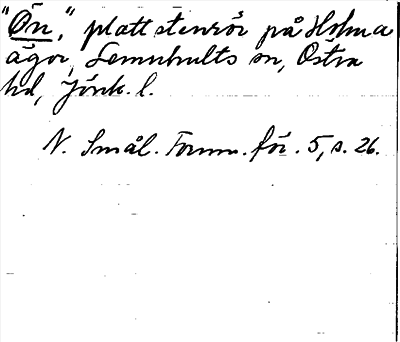 "Ön," platt stenrör på Holma
ägor, Lemnhults sn, Östra
hd, Jönk. l.
N. Smål. Fornm. för. 5, s. 26.